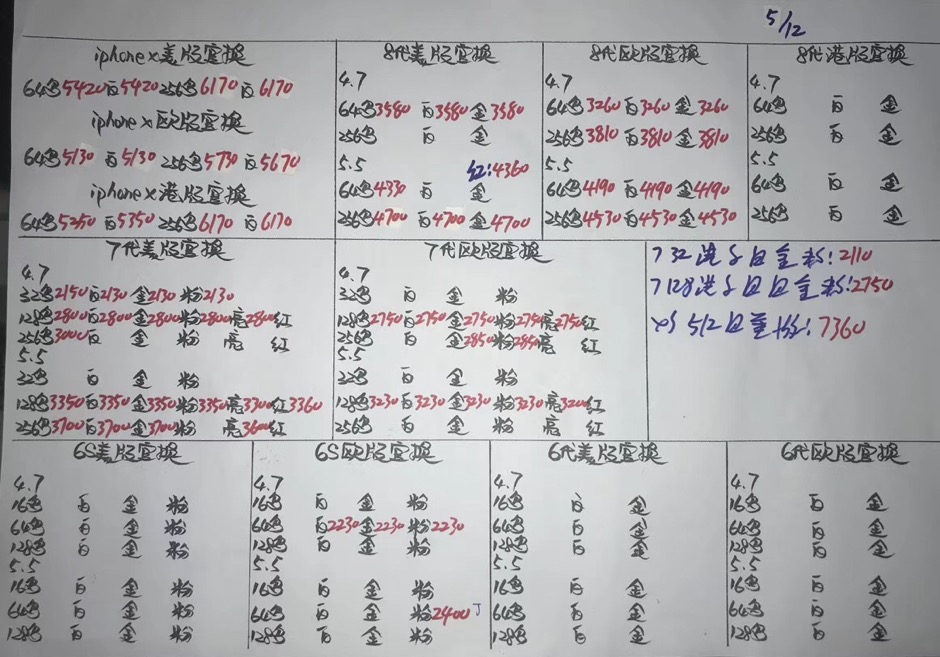 5/12
iphone x美版官换
64鸟5420白5420 256鸟6170白6170
iphone x欧版官换
64鸟5130白5130 256鸟5730白5670
iphone x港版官换
64鸟5350白5350 256鸟6170白6170
8代美版官换
4.7
64鸟3580白3580金3580
256鸟 白 金
5.5 红:4360
64鸟4330白 金
256鸟4700白4700金4700
8代欧版官换
4.7
64鸟3260白3260金3260
256鸟3810白3810金3810
5.5
64鸟4190白4190金4190
256鸟4530白4530金4530
8代港版官换
4.7
64鸟 白 金
256鸟 白 金
5.5
64鸟 白 金
256鸟 白 金
7代美版官换
4.7
32鸟2150白2130金2130粉2130
128鸟2800白2800金2800粉2800亮2800红
256鸟3000白 金 粉 亮 红
5.5
32鸟 白 金 粉
128鸟3350白3350金3350粉3350亮3300红3360
256鸟3700白3700金3700粉 亮3600红
7代欧版官换
4.7
32鸟 白 金 粉
128鸟2750白2750金2750粉2750亮2750红
256鸟 白 金2850粉2850亮 红
5.5
32鸟 白 金 粉
128鸟3230白3230金3230粉3230亮3200红
256鸟 白 金 粉 亮 红
7 32港 白金粉:2110
7 128港 白 金粉:2750
xs 512白 :7360
6S美版官换
4.7
16鸟 白 金 粉
64鸟 白 金 粉
128鸟 白 金 粉
5.5
16鸟 白 金 粉
64鸟 白 金 粉
128鸟 白 金 粉
6S欧版官换
4.7
16鸟 白 金 粉
64鸟 白2230金2230粉2230
128鸟 白 金 粉
5.5
16鸟 白 金 粉
64鸟 白 金 粉2400
128鸟 白 金 粉
6代美版官换
4.7
16鸟 白 金
64鸟 白 金
128鸟 白 金
5.5
16鸟 白 金
64鸟 白 金
128鸟 白 金
6代欧版官换
4.7
16鸟 白 金
64鸟 白 金
128鸟 白 金
5.5
16鸟 白 金
64鸟 白 金
128鸟 白 金